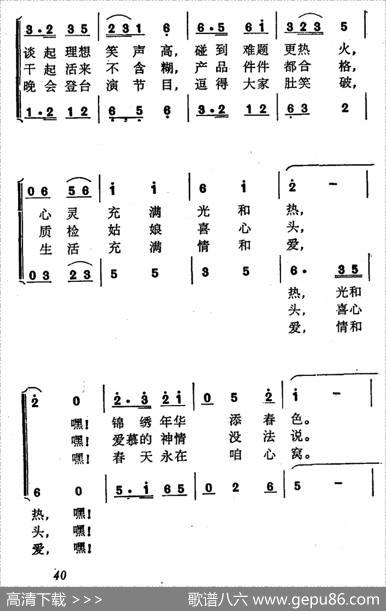 3·2 35 231 6 6·5 6i 323 5
谈起理想 笑声高, 碰到 难题 更热 火,
干起活来 不含糊, 产品 件件 都合 格,
晚会登台 演节目, 逗得 大家 肚笑 破,
1·2 12 6 5 6 3·2 12 63 2
06 56 i i 6 i 2 -
心灵 充 满 光 和 热,
质检 姑 娘 喜 心 头,
生活 充 满 情 和 爱,
03 23 5 5 3 5 6· 35
热, 光和
头, 喜心
爱, 情和
2 0 2·3 2i 0 5 2 i -
嘿! 锦绣 年华 添 春 色。
嘿! 爱慕的 神情 没 法 说。
嘿! 春天 永在 咱 心 窝。
6 0 5·i 65 0 2 6 5 -
热, 嘿!
头, 嘿!
爱, 嘿!
40
高清下载 >>> 歌谱八六 www.gepu86.com